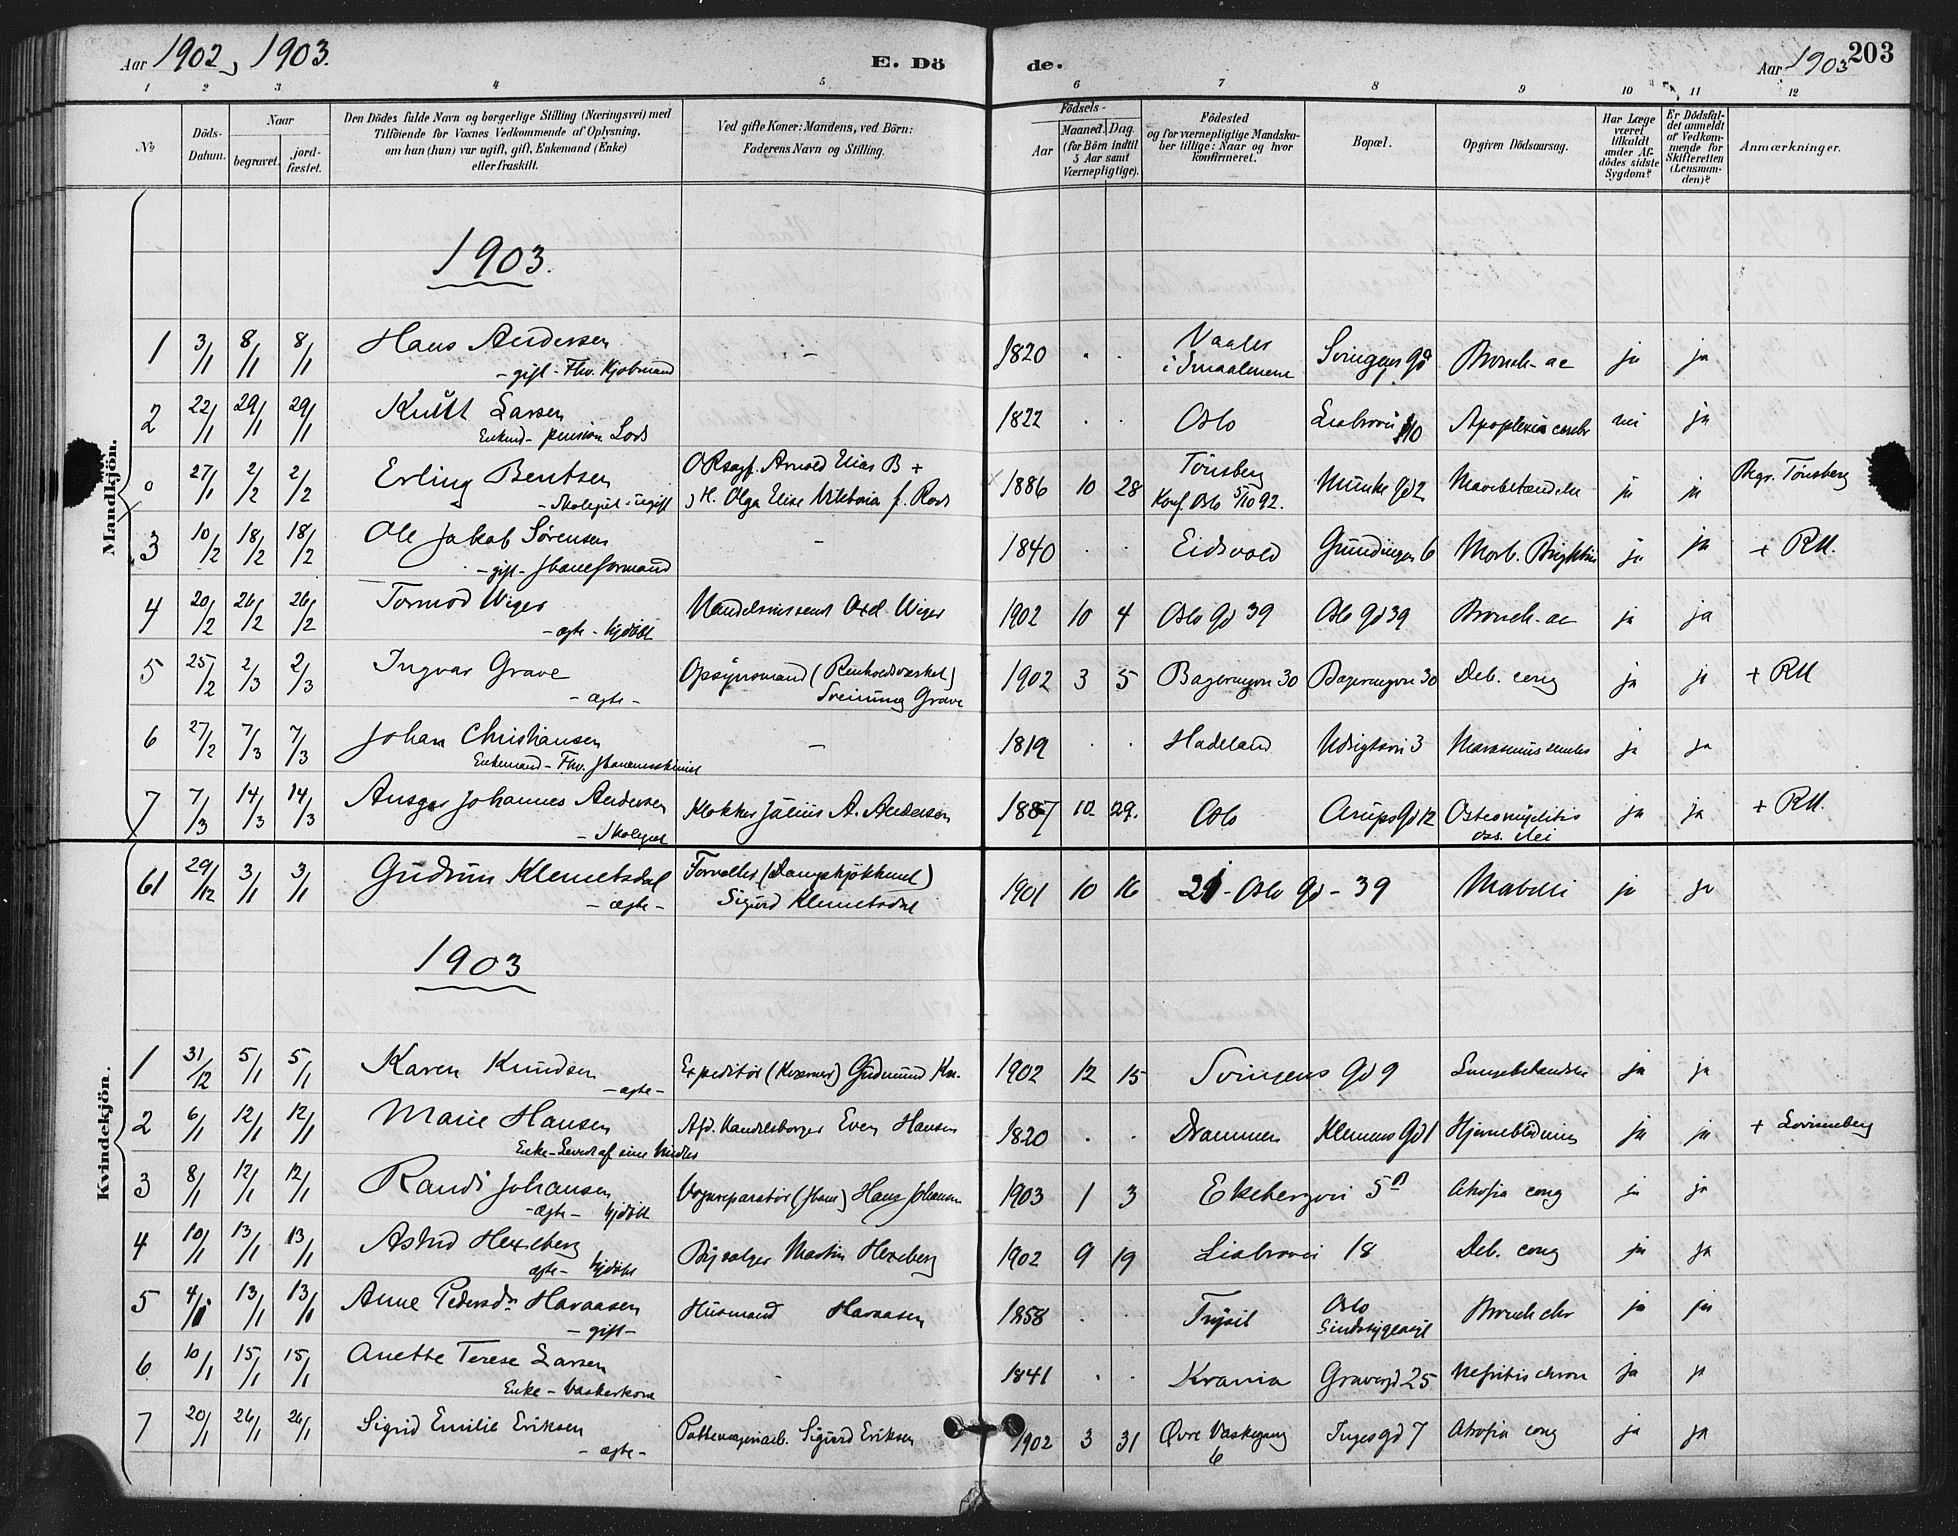 Aar 1902, 1903. E. Dö de. Aar 1903 203
1 2 3 4 5 6 7 8 9 10 11 12
No
Döds-Datum.
Naar
begravet.
jord-fæstet.
Den Dödes fulde Navn og borgerlige Stilling (Næringsvei) med
Tilföiende for Voxnes Vedkommende af Oplysning,
om han (hun) var ugift, gift, Enkemand (Enke)
eller fraskilt.
Ved gifte Koner: Mandens, ved Börn:
Faderens Navn og Stilling.
Födsels-
Aar
Maaned. Dag.
(for Börn indtil
5 Aar samt
Værnepligtige).
Födested
og for værnepligtige Mandska-
ber tillige: Naar og hvor
konfirmeret.
Bopæl.
Opgiven Dödsaarsag.
Har Læge
været
tilkaldt
under Af-
dödes sidste
Sygdom?
Er Dödsfal-
det anmeldt
af Vedkom-
mende for
Skifteretten
(Lensman-
den)?
Anmærkninger.
Mandkjön.
1903.
1 3/1 8/1 8/1 Hans Andersen - 1820 . . Vaaler Svingens gd Bronch. ac ja ja
- gift - Fhv. Kjøbmand i Smaalenene
2 22/1 29/1 29/1 Knut Larsen 1822 . . Oslo 10 Apoplexia cerebr nei ja
Enkmd - pension. Lods
0 27/1 2/2 2/2 Erling Bentsen ORsagf. Arnold Elias B + 1886 10 28 Tönsberg Munke gd 2 ja ja Begr. Tönsberg
- Skolegut - ugift H. Olga Elise Viktoria f. Konf. Oslo 5/10 92.
3 10/2 18/2 18/2 Ole Jakob Sørensen - 1840 . . Eidsvold 6 Morb. Brightii ja ja + RM.
- gift - Jbaneformand
4 20/2 26/2 26/2 Tormod Wiger Axel Wiger 1902 10 4 Oslo gd 39 Oslo gd 39 Bronch. ac ja ja
- ægte - hjdöbt
5 25/2 2/3 2/3 Ingvar Grave Opsynsmand (Renholdsverket) 1902 3 5 30 30 Deb. cong ja ja + RM
- ægte - Sveinung Grave
6 27/2 7/3 7/3 Johan Christiansen - 1819 . . Hadeland 3 Marasmus senilis ja ja
Enkemand - Fhv.
7 7/3 14/3 14/3 Ansgar Johannes Andersen Klokker Julius A. Andersen 1887 10 29. Oslo Arups gd 12 Osteomyelitis ja ja + RM.
- Skolegut oss. ilei
61 29/12 3/1 3/1 Gudrun Klemetsdal Forvalter (Dampkjökkenet) 1901 10 16 21 - Oslo gd - 39 Morbilli ja ja
- ægte - Sigurd Klemetsdal
Kvindekjön.
1903
1 31/12 5/1 5/1 Karen Knudsen Expeditör Gudmund Kn. 1902 12 15 Svingens gd 9 Lungebetændelse ja ja
- ægte -
2 6/1 12/1 12/1 Marie Hansen Afd. Handelsborger Even Hansen 1820 . . Drammen Klemens gd 1 Hjerneblödning ja ja + Lovisenberg
Enke - Levet af sine Midler
3 8/1 12/1 12/1 Randi Johansen Vognreparatör (Jban) Hans Johansen 1903 1 3 Ekebergvei 5B Atrofia cong ja ja
- ægte - hjdöbt
4 10/1 13/1 13/1 Astrid Hexeberg Martin Hexeberg 1902 9 19 18 Deb. cong ja ja
ægte - hjdöbt
5 4/1 13/1 13/1 Anne Pedersdr Havaasen Husmand Havaasen 1858 . . Trysil Oslo Bronch chr ja ja
- gift - Sindssygeasyl
6 10/1 15/1 15/1 Anette Terese Larsen - 1841 . . Krania 25 Nefritis chron ja ja
Enke - Vaskerkone
7 20/1 26/1 26/1 Sigrid Emilie Eriksen Sigurd Eriksen 1902 3 31 Øvre Vaskegang Inges gd 7 Atrofia cong ja ja
- ægte - 6